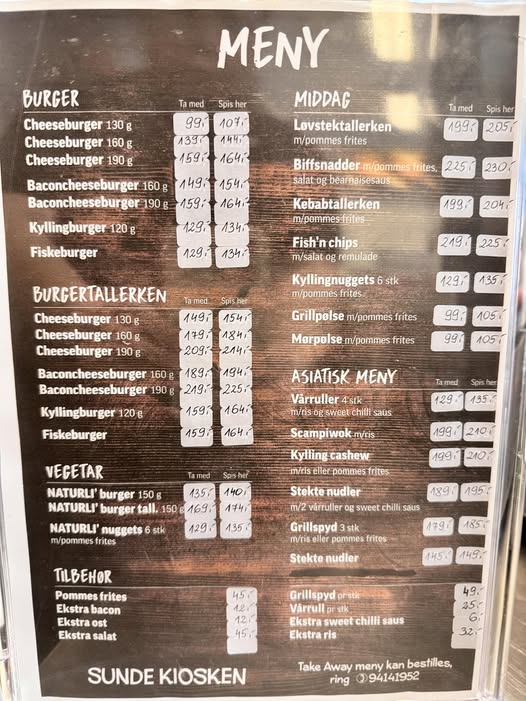 MENY
BURGER Ta med Spis her
Cheeseburger 130 g 99,- 107,-
Cheeseburger 160 g 139,- 144,-
Cheeseburger 190 g 159,- 164,-
Baconcheeseburger 160 g 149,- 154,-
Baconcheeseburger 190 g 159,- 164,-
Kyllingburger 120 g 129,- 134,-
Fiskeburger 129,- 134,-
BURGERTALLERKEN Ta med Spis her
Cheeseburger 130 g 149,- 154,-
Cheeseburger 160 g 179,- 184,-
Cheeseburger 190 g 209,- 214,-
Baconcheeseburger 160 g 189,- 194,-
Baconcheeseburger 190 g 219,- 225,-
Kyllingburger 120 g 159,- 164,-
Fiskeburger 159,- 164,-
VEGETAR Ta med Spis her
NATURLI' burger 150 g 135,- 140,-
NATURLI' burger tall. 150 g 169,- 174,-
NATURLI' nuggets 6 stk 129,- 135,-
m/pommes frites
TILBEHØR
Pommes frites 45,-
Ekstra bacon 12,-
Ekstra ost 12,-
Ekstra salat 45,-
SUNDE KIOSKEN
MIDDAG Ta med Spis her
Løvstektallerken 199,- 205,-
m/pommes frites
Biffsnadder m/pommes frites, 225,- 230,-
salat og bearnaisesaus
Kebabtallerken 199,- 204,-
m/pommes frites
Fish'n chips 219,- 225,-
m/salat og remulade
Kyllingnuggets 6 stk 129,- 135,-
m/pommes frites
Grillpølse m/pommes frites 99,- 105,-
Mørpolse m/pommes frites 99,- 105,-
ASIATISK MENY Ta med Spis her
Vårruller 4 stk 129,- 135,-
m/ris og sweet chilli saus
Scampiwok m/ris 199,- 210,-
Kylling cashew 199,- 210,-
m/ris eller pommes frites
Stekte nudler 189,- 195,-
m/2 vårruller og sweet chilli saus
Grillspyd 3 stk 179,- 185,-
m/ris eller pommes frites
Stekte nudler 145,- 149,-
Grillspyd pr stk 49,-
Vårrull pr stk 25,-
Ekstra sweet chilli saus 6,-
Ekstra ris 32,-
Take Away meny kan bestilles,
ring 94141952